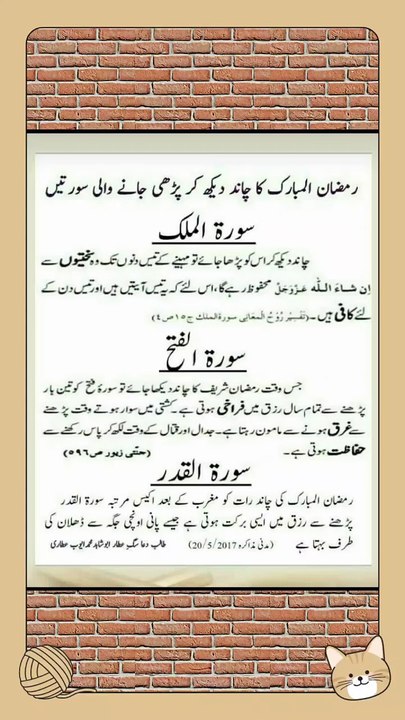 رمضان المبارک کا چاند دیکھ کر پڑھی جانے والی سورتیں
سورۃ الملک
چاند دیکھ کر اس کو پڑھا جائے تو مہینے کے تیس دنوں تک وہ سختیوں سے
اِن شاءَ اللّٰہ عَزَّوَجَلَّ محفوظ رہے گا، اس لئے کہ یہ تیس آیتیں ہیں اور تیس دن کے
لئے کافی ہیں۔ (تفسیر رُوْحُ الْمَعَانِی سورۃ الملک ج ۱۵ ص ۴)
سورۃ الفتح
جس وقت رمضان شریف کا چاند دیکھا جائے تو سورۃ فتح کو تین بار
پڑھنے سے تمام سال رزق میں فراخی ہوتی ہے۔ کشتی میں سوار ہوتے وقت پڑھنے
سے غرق ہونے سے مامون رہتا ہے۔ جدال اور قتال کے وقت لکھ کر پاس رکھنے سے
حفاظت ہوتی ہے۔ (جنتی زیور ص ۵۹۶)
سورۃ القدر
رمضان المبارک کی چاند رات کو مغرب کے بعد اکیس مرتبہ سورۃ القدر
پڑھنے سے رزق میں ایسی برکت ہوتی ہے جیسے پانی اونچی جگہ سے ڈھلان کی
طرف بہتا ہے (مدنی مذاکرہ 20/5/2017) طالب دعا سگ عطار ابو شاہد محمد ایوب عطاری